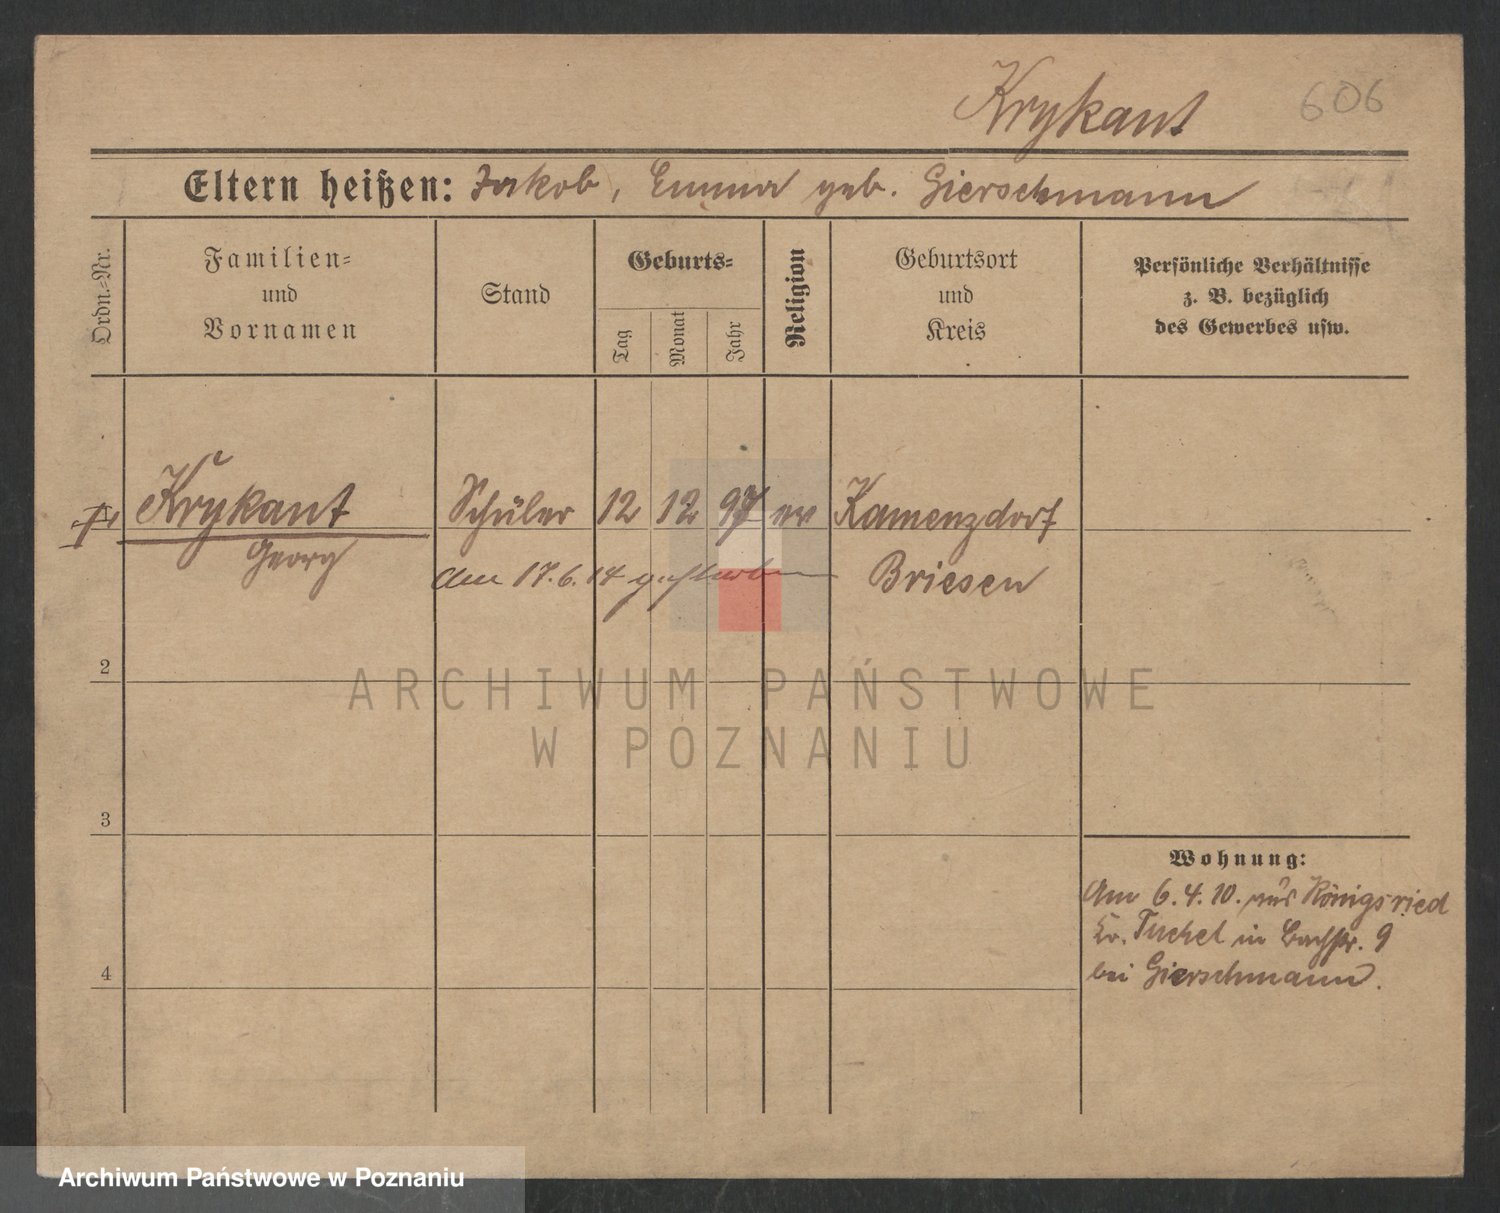 Krykant 606
Eltern heißen: Jakob, Emma geb. Gierschmann
Ordn.-Nr.
Familien-
und
Vornamen
Stand
Geburts-
Tag
Monat
Jahr
Religion
Geburtsort
und
Kreis
Persönliche Verhältnisse
z. B. bezüglich
des Gewerbes usw.
Krykant Schüler 12 12 97 ev Kamenzdorf
Georg
am 17.6.14 gestorben Briesen
2
3
4
Wohnung:
Am 6.4.10. aus Königsried
Kr. Tuchel in Bachstr. 9
bei Gierschmann.
ARCHIWUM PAŃSTWOWE
W POZNANIU
Archiwum Państwowe w Poznaniu